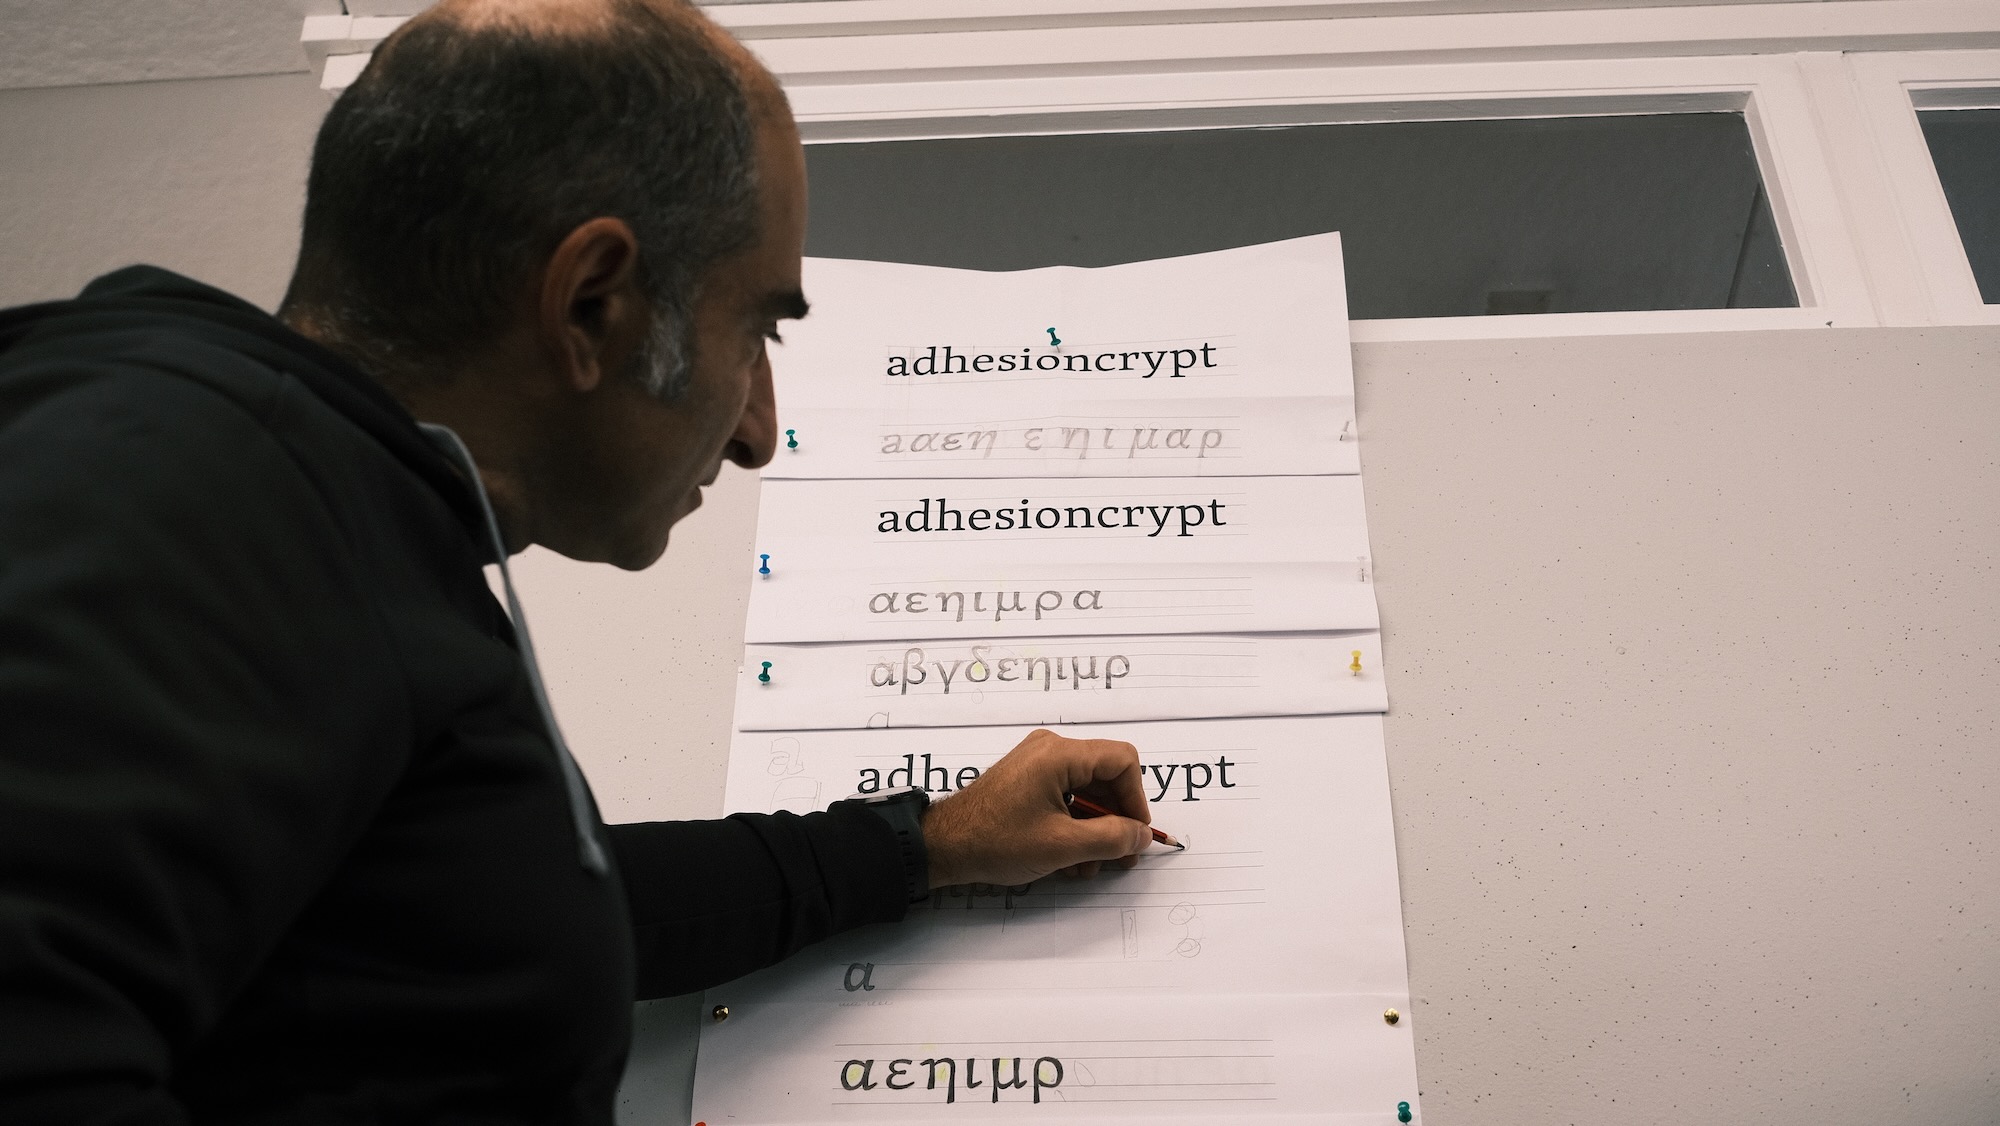 adhesioncrypt
aαεη ε η ι μαρ
adhesioncrypt
αεηιμρα
αβγδεηιμρ
a
adhe rypt
ημρ
α
αεηιμρ